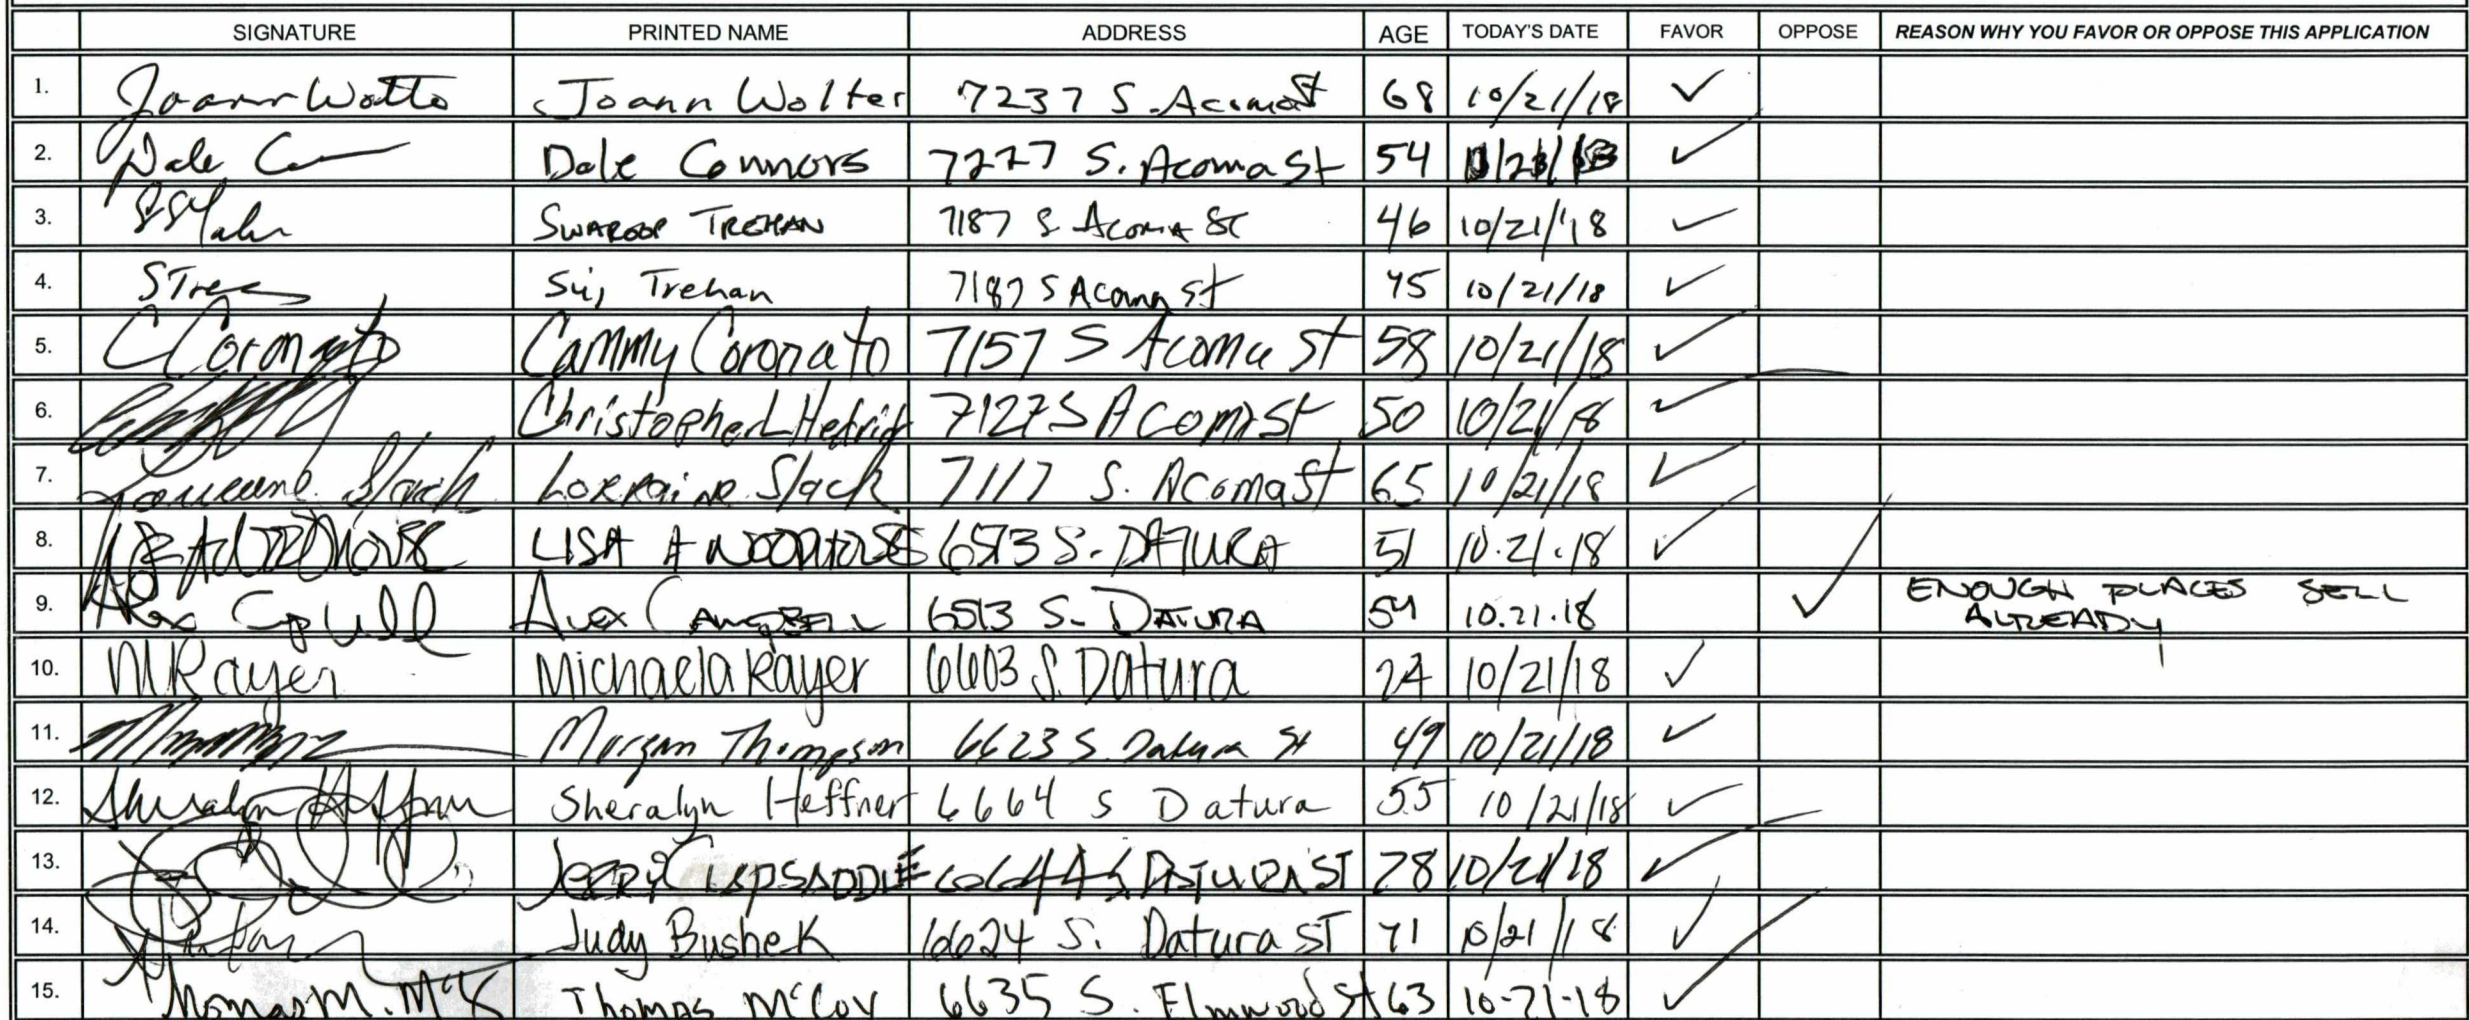 SIGNATURE PRINTED NAME ADDRESS AGE TODAY'S DATE FAVOR OPPOSE REASON WHY YOU FAVOR OR OPPOSE THIS APPLICATION
1. Joann Wolter 7237 S. Acoma St 68 10/21/18 ✓
2. Dale Connors 7227 S. Acoma St 54 ✓
3. SWAROOP TREHAN 7187 S ACOMA St 46 10/21/'18 ✓
4. Trehan 7187 S Acoma St 45 10/21/18 ✓
5. C Coronato Cammy Coronato 7157 S Acoma St 58 10/21/18 ✓
6. Christopher L 7127 S Acoma St 50 10/21/18 ✓
7. Lorraine Slack Lorraine Slack 7117 S. Acoma St 65 10/21/18 ✓
8. LISA A 6513 S. DATURA 51 10.21.18 ✓
9. Alex CAMPBELL 6513 S. DATURA 54 10.21.18 ✓ ENOUGH PLACES SELL
ALREADY
10. M Rayer Michaela Rayer 6603 S. Datura 24 10/21/18 ✓
11. Morgan Thompson 6623 S. Datura St 49 10/21/18 ✓
12. Sheralyn Heffner Sheralyn Heffner 6664 S Datura 55 10/21/18 ✓
13. JERRY 6644 S DATURA ST 78 10/21/18 ✓
14. Judy Bushek 6624 S. Datura ST 71 10/21/18 ✓
15. Thomas M. Thomas McCoy 6635 S. Elmwood St 63 10-21-18 ✓